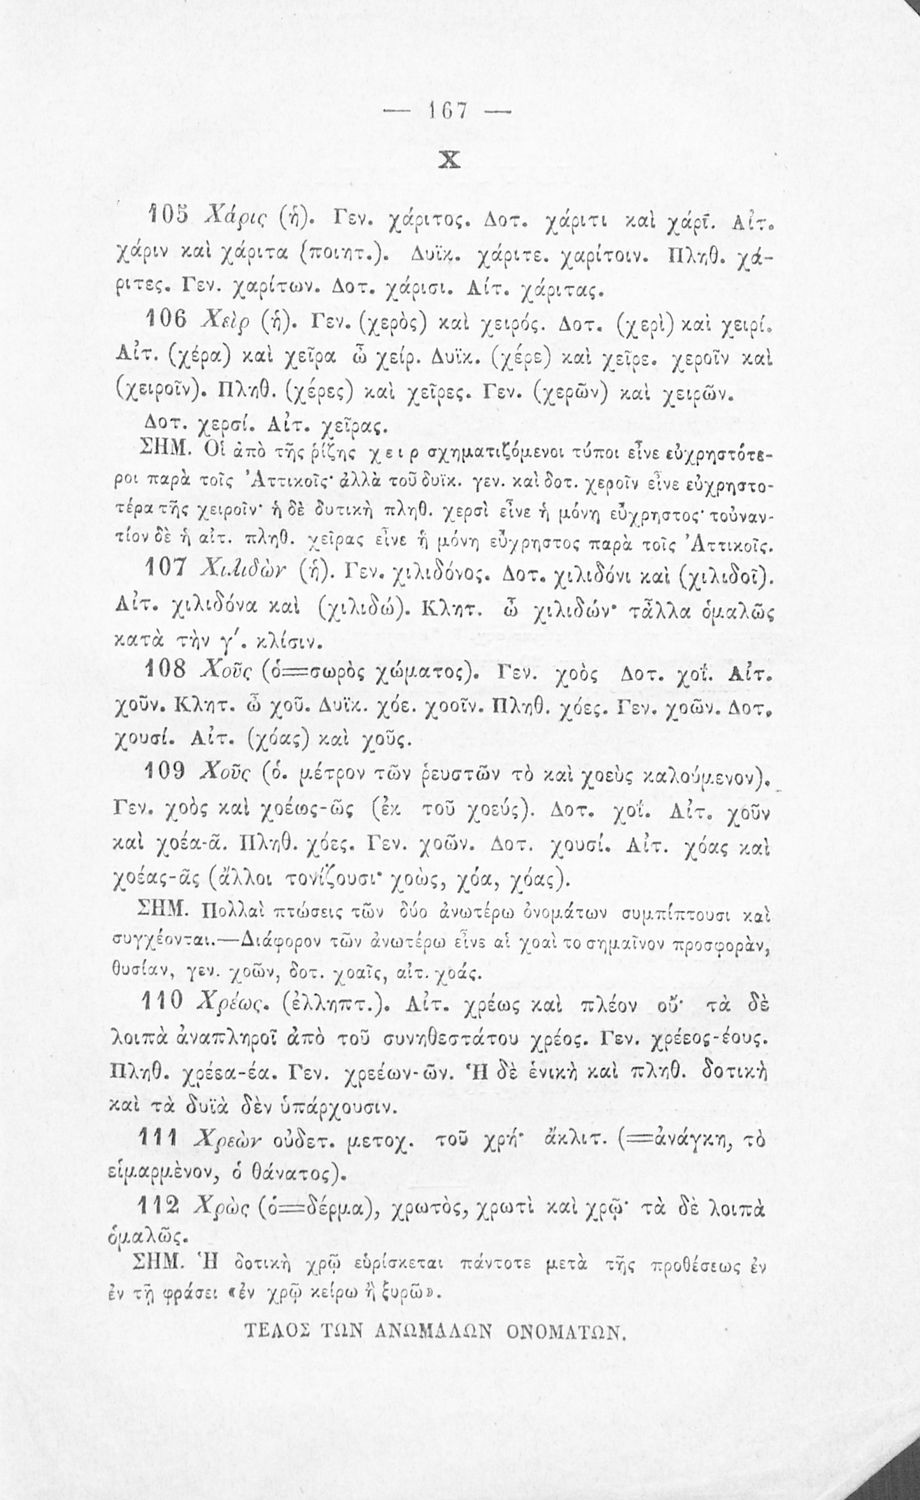 — 167 —
X
105 Χάρις (ἡ). Γεν. χάριτος. Δοτ. χάριτι καὶ χάρϊ. Αἰτ.
χάριν καὶ χάριτα (ποιητ.). Δυϊκ. χάριτε. χαρίτοιν. Πληθ. χά-
ριτες. Γεν. χαρίτων. Δοτ. χάρισι. Αἰτ. χάριτας.
106 Χεὶρ (ἡ). Γεν. (χερὸς) καὶ χειρός. Δοτ. (χερὶ) καὶ χειρί.
Αἰτ. (χέρα) καὶ χεῖρα ὦ χείρ. Δυϊκ. (χέρε) καὶ χεῖρε. χεροῖν καὶ
(χειροῖν). Πληθ. (χέρες) καὶ χεῖρες. Γεν. (χερῶν) καὶ χειρῶν.
Δοτ. χερσί. Αἰτ. χεῖρας.
ΣΗΜ. Οἱ ἀπὸ τῆς ῥίζης χειρ σχηματιζόμενοι τύποι εἶνε εὐχρηστότε-
ροι παρὰ τοῖς Ἀττικοῖς· ἀλλὰ τοῦ δυϊκ. γεν. καὶ δοτ. χεροῖν εἶνε εὐχρηστο-
τέρα τῆς χειροῖν· ἡ δὲ δυτικὴ πληθ. χερσὶ εἶνε ἡ μόνη εὔχρηστος· τοὐναν-
τίον δὲ ἡ αἰτ. πληθ. χεῖρας εἶνε ἡ μόνη εὔχρηστος παρὰ τοῖς Ἀττικοῖς.
107 Χιλιδὼν (ἡ). Γεν. χιλιδόνος. Δοτ. χιλιδόνι καὶ (χιλιδοῖ).
Αἰτ. χιλιδόνα καὶ (χιλιδώ). Κλητ. ὦ χιλιδών· τἆλλα ὁμαλῶς
κατὰ τὴν γʹ. κλίσιν.
108 Χοῦς (ὁ=σωρὸς χώματος). Γεν. χοὸς Δοτ. χοΐ. Αἰτ.
χοῦν. Κλητ. ὦ χοῦ. Δυϊκ. χόε. χοοῖν. Πληθ. χόες. Γεν. χοῶν. Δοτ.
χουσί. Αἰτ. (χόας) καὶ χοῦς.
109 Χοῦς (ὁ. μέτρον τῶν ῥευστῶν τὸ καὶ χοεὺς καλούμενον).
Γεν. χοὸς καὶ χοέως-ῶς (ἐκ τοῦ χοεύς). Δοτ. χοΐ. Αἰτ. χοῦν
καὶ χοέα-ᾶ. Πληθ. χόες. Γεν. χοῶν. Δοτ. χουσί. Αἰτ. χόας καὶ
χοέας-ᾶς (ἄλλοι τονίζουσι· χοὼς, χόα, χόας).
ΣΗΜ. Πολλαὶ πτώσεις τῶν δύο ἀνωτέρω ὀνομάτων συμπίπτουσι καὶ
συγχέονται.—Διάφορον τῶν ἀνωτέρω εἶνε αἱ χοαὶ το σημαῖνον προσφορὰν,
θυσίαν, γεν. χοῶν, δοτ. χοαῖς, αἰτ. χοάς.
110 Χρέως. (ἐλλῃπτ.). Αἰτ. χρέως καὶ πλέον οὔ· τὰ δὲ
λοιπὰ ἀναπληροῖ ἀπὸ τοῦ συνηθεστάτου χρέος. Γεν. χρέεος-έους.
Πληθ. χρέεα-έα. Γεν. χρεέων-ῶν. Ἡ δὲ ἑνικὴ καὶ πληθ. δοτικὴ
καὶ τὰ δυϊὰ δὲν ὑπάρχουσιν.
111 Χρεὼν οὐδετ. μετοχ. τοῦ χρή· ἄκλιτ. (=ἀνάγκη, τὸ
εἱμαρμὲνον, ὁ θάνατος).
112 Χρὼς (ὁ=δέρμα), χρωτὸς, χρωτὶ καὶ χρῷ· τὰ δὲ λοιπὰ
ὁμαλῶς.
ΣΗΜ. Ἡ δοτικὴ χρῷ εὑρίσκεται πάντοτε μετὰ τῆς προθέσεως ἐν
ἐν τῇ φράσει «ἐν χρῷ κείρω ἢ ξυρῶ».
ΤΕΛΟΣ ΤΩΝ ΑΝΩΜΑΛΩΝ ΟΝΟΜΑΤΩΝ.